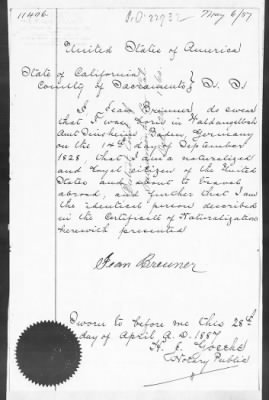 11406
May 6/87
United States of America
State of California
County of Sacramento } S. S.
I Jean Breuner, do swear
that I was born in
Amt Sinsheim, Baden, Germany
on the 14th day of September
1828, that I am a naturalized
and loyal citizen of the United
States and about to travel
abroad, and further that I am
the identical person described
in the Certificate of Naturalization
herewith presented
Jean Breuner
Sworn to before me this 28th
day of April A. D. 1887
Notary Public